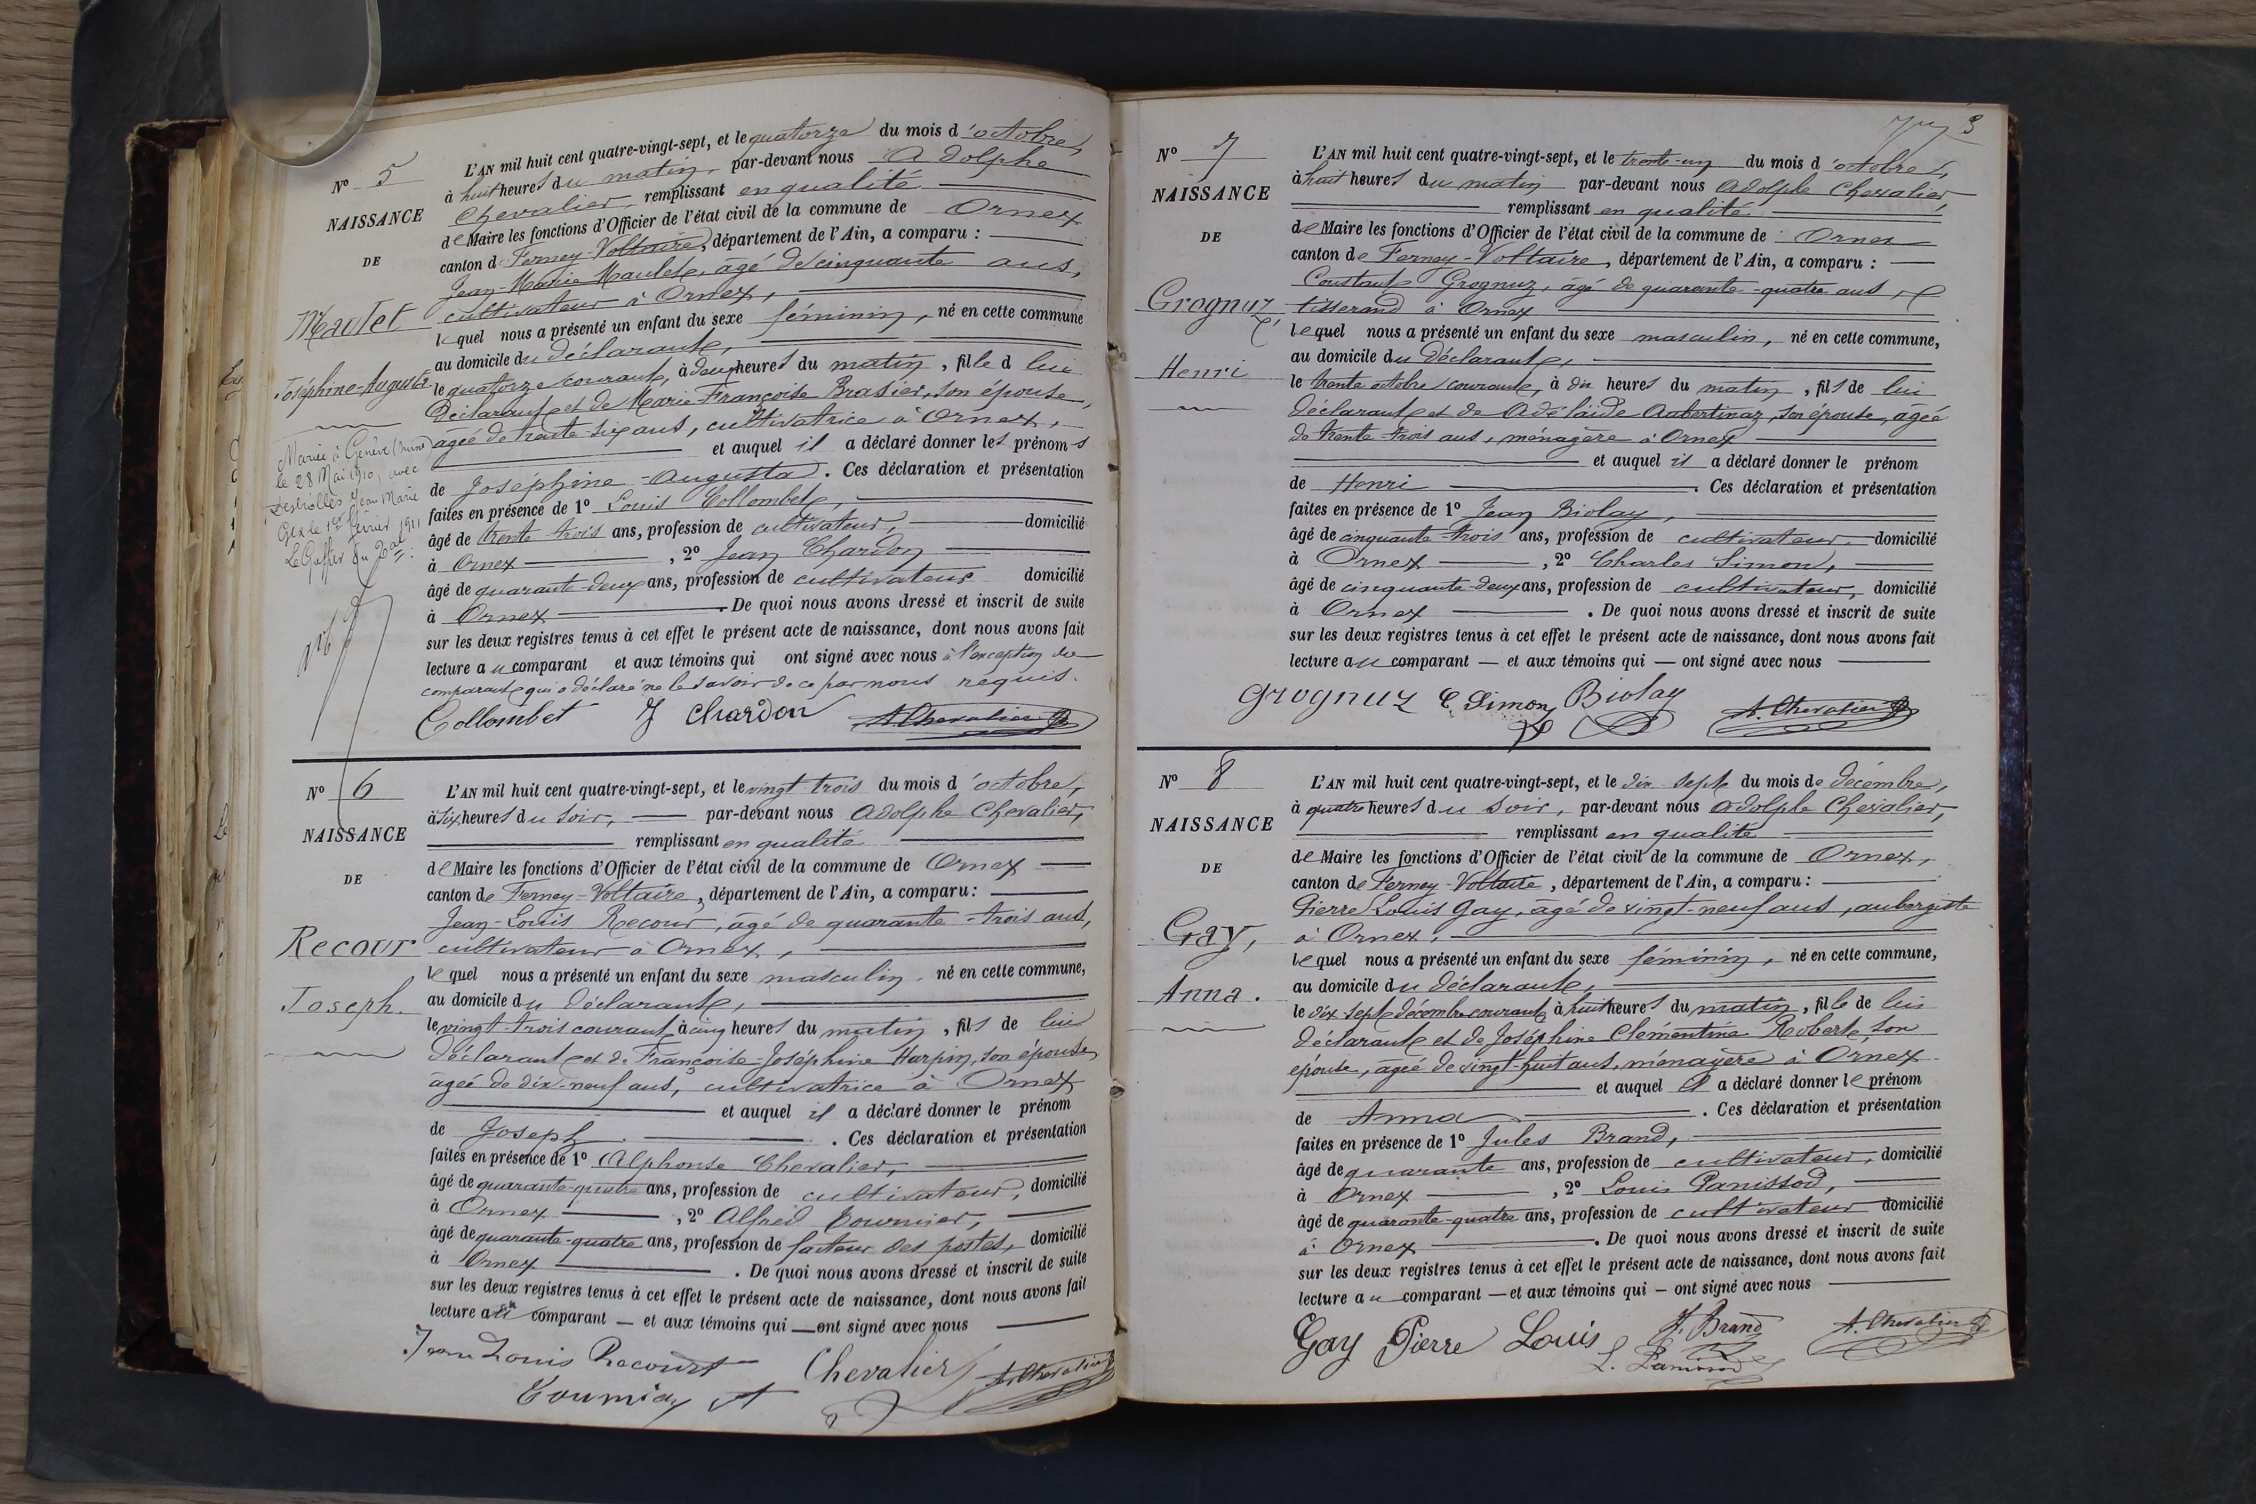 N° 5
NAISSANCE
DE
Maulet
Joséphine-Augusta
Mariée à Genève (Suisse)
le 28 Mai 1910, avec
Jean Marie
Gex le 1er février 1911
L'AN mil huit cent quatre-vingt-sept, et le quatorze du mois d'octobre,
à huit heures du matin, par-devant nous Adolphe
Chevalier remplissant en qualité
de Maire les fonctions d'Officier de l'état civil de la commune de Ornex
canton de Ferney-Voltaire, département de l'Ain, a comparu :
Jean-Marie Maulet, âgé de cinquante ans,
cultivateur à Ornex,
lequel nous a présenté un enfant du sexe féminin, né en cette commune
au domicile du déclarant,
le quatorze courant, à deux heures du matin, fille d lui
Déclarant et de Marie Françoise Brasier, son épouse,
âgée de trente-six ans, cultivatrice à Ornex,
et auquel il a déclaré donner les prénoms
de Joséphine-Augusta. Ces déclaration et présentation
faites en présence de 1° Louis Collombet,
âgé de trente trois ans, profession de cultivateur, domicilié
à Ornex, 2° Jean Chardon
âgé de quarante-deux ans, profession de cultivateur domicilié
à Ornex. De quoi nous avons dressé et inscrit de suite
sur les deux registres tenus à cet effet le présent acte de naissance, dont nous avons fait
lecture au comparant et aux témoins qui ont signé avec nous à l'exception du
comparant qui a déclaré ne le savoir de ce par nous requis.
Collombet J Chardon A. Chevalier
N° 6
NAISSANCE
DE
Recour
Joseph.
L'AN mil huit cent quatre-vingt-sept, et le vingt-trois du mois d'octobre,
à six heures du soir, par-devant nous Adolphe Chevalier,
remplissant en qualité
de Maire les fonctions d'Officier de l'état civil de la commune de Ornex
canton de Ferney-Voltaire, département de l'Ain, a comparu :
Jean-Louis Recour, âgé de quarante-trois ans,
cultivateur à Ornex,
lequel nous a présenté un enfant du sexe masculin, né en cette commune,
au domicile du déclarant,
le vingt-trois courant, à cinq heures du matin, fils de lui
déclarant et de Françoise-Joséphine Harpin, son épouse
âgée de dix-neuf ans, cultivatrice à Ornex
et auquel il a déclaré donner le prénom
de Joseph. Ces déclaration et présentation
faites en présence de 1° Alphonse Chevalier,
âgé de quarante-quatre ans, profession de cultivateur, domicilié
à Ornex, 2° Alfred Tournier,
âgé de quarante-quatre ans, profession de facteur des postes, domicilié
à Ornex. De quoi nous avons dressé et inscrit de suite
sur les deux registres tenus à cet effet le présent acte de naissance, dont nous avons fait
lecture au comparant et aux témoins qui ont signé avec nous
Jean Louis Recourt Chevalier A. Chevalier
Tournier A
3
N° 7
NAISSANCE
DE
Grognuz
Henri
L'AN mil huit cent quatre-vingt-sept, et le trente-un du mois d'octobre,
à huit heures du matin par-devant nous Adolphe Chevalier,
remplissant en qualité
de Maire les fonctions d'Officier de l'état civil de la commune de Ornex
canton de Ferney-Voltaire, département de l'Ain, a comparu :
Constant Grognuz, âgé de quarante-quatre ans,
tisserand à Ornex
lequel nous a présenté un enfant du sexe masculin, né en cette commune,
au domicile du déclarant,
le trente octobre courant, à dix heures du matin, fils de lui
déclarant et de Adélaïde Aubertinaz, son épouse, âgée
de trente-trois ans, ménagère à Ornex
et auquel il a déclaré donner le prénom
de Henri. Ces déclaration et présentation
faites en présence de 1° Jean Biolay,
âgé de cinquante-trois ans, profession de cultivateur domicilié
à Ornex, 2° Charles Simon,
âgé de cinquante-deux ans, profession de cultivateur, domicilié
à Ornex. De quoi nous avons dressé et inscrit de suite
sur les deux registres tenus à cet effet le présent acte de naissance, dont nous avons fait
lecture au comparant — et aux témoins qui — ont signé avec nous
Grognuz C. Simon Biolay A. Chevalier
N° 8
NAISSANCE
DE
Gay,
Anna.
L'AN mil huit cent quatre-vingt-sept, et le dix-sept du mois de décembre,
à quatre heures du soir, par-devant nous Adolphe Chevalier,
remplissant en qualité
de Maire les fonctions d'Officier de l'état civil de la commune de Ornex,
canton de Ferney-Voltaire, département de l'Ain, a comparu :
Pierre Louis Gay, âgé de vingt-neuf ans, aubergiste
à Ornex,
lequel nous a présenté un enfant du sexe féminin, né en cette commune,
au domicile du déclarant,
le dix sept décembre courant, à huit heures du matin, fille de lui
déclarant et de Joséphine Clémentine Robert, son
épouse, âgée de vingt-huit ans, ménagère à Ornex
et auquel il a déclaré donner le prénom
de Anna. Ces déclaration et présentation
faites en présence de 1° Jules Brand,
âgé de quarante ans, profession de cultivateur, domicilié
à Ornex, 2° Louis Panissod,
âgé de quarante-quatre ans, profession de cultivateur domicilié
à Ornex. De quoi nous avons dressé et inscrit de suite
sur les deux registres tenus à cet effet le présent acte de naissance, dont nous avons fait
lecture au comparant — et aux témoins qui — ont signé avec nous
Gay Pierre Louis J. Brand A. Chevalier
L. Panissod